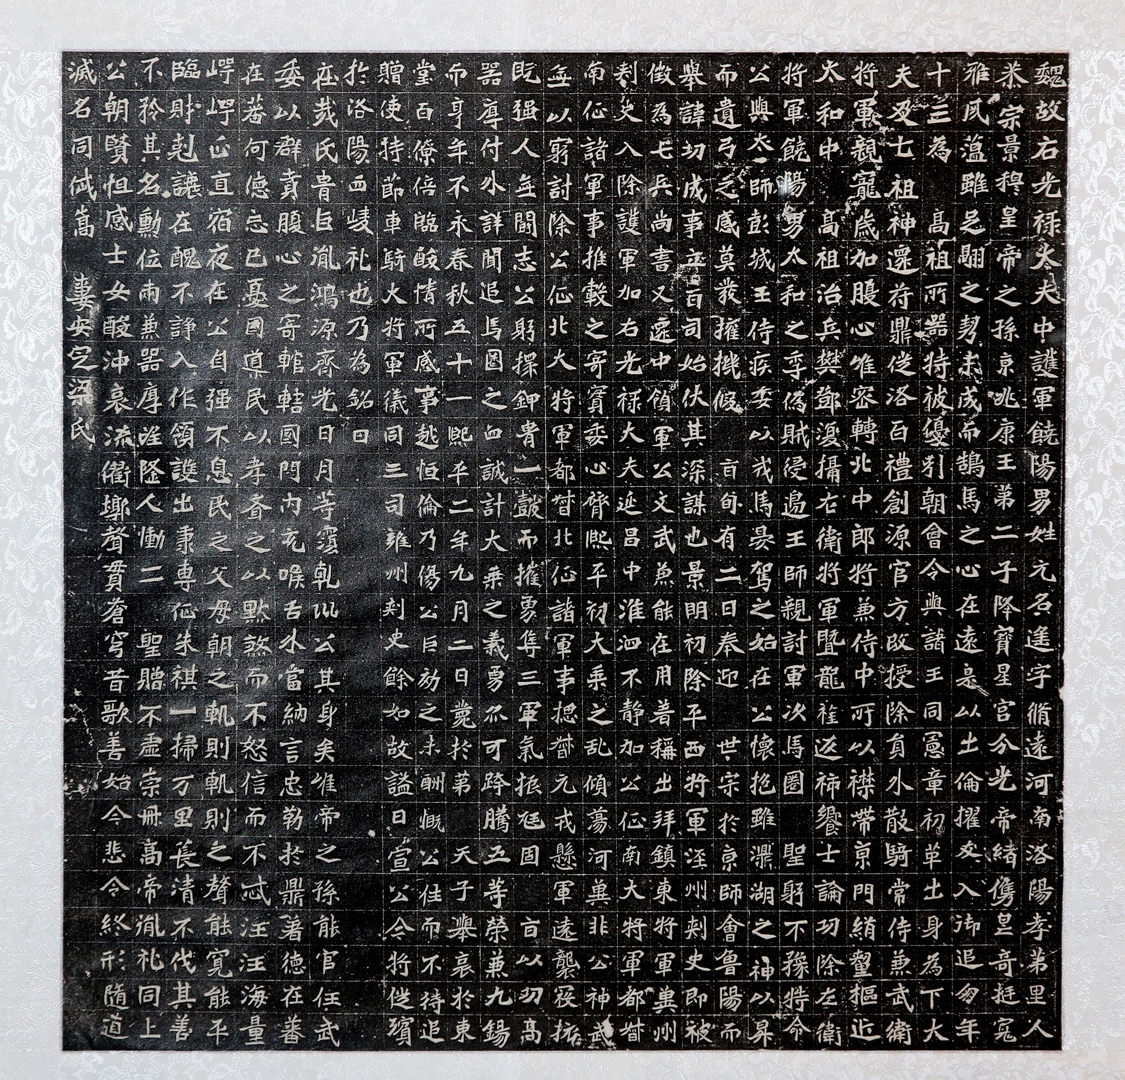 魏故右光禄大夫中護軍饒陽男姓元名遙字脩遠河南洛陽孝弟里人
恭宗景穆皇帝之孫京兆康王第二子降寶星宮分光帝緒儁皇奇挺寬
雅夙蘊雖是翩之契未成而鵠馬之心在遠哀以士倫擢爰入御追匆年
十三為 高祖所器特被優引朝會令與諸王同憲章初革出身為下大
夫及七祖神遷苻鼎從洛百禮創源官方改授除員外散騎常侍兼武衛
將軍親寵歲加腹心惟密轉北中郎將兼侍中所以襟帶京門緝釐樞近
太和中 高祖治兵樊鄧復攝右衛將軍曁龍旌返旆饗士論功除左衛
將軍饒陽男太和之季偽賊侵邊王師親討軍次馬圈 聖躬不豫特令
公與太師彭城王侍疾委以戎馬晏駕之始在公懷抱雖灅湖之神以昇
而遺弓之感莫發擁機假 旬有二日奉迎 世宗於京師會魯陽而
舉諱功成事立百司始伏其深謀也景明初除平西將軍涇州刺史即被
徵為七兵尚書又遷中領軍公文武兼能在用著稱出拜鎮東將軍冀州
刺史入除護軍加右光祿大夫延昌中淮泗不靜加公征南大將軍都督
南征諸軍事推轂之寄實委心膂熙平初大乘之亂傾蕩河冀非公神武
無以窮討除公征北大將軍都督北征諸軍事揔督元戎懸軍遠襲寇旅
既强人無鬪志公躬擐鉀胄一鼓而摧勇雋三軍氣振尅固 旨以功高
器厚付外詳聞追馬圈之血誠計大乘之義勇尒可跨騰五等榮兼九錫
而享年不永春秋五十一熙平二年九月二日薨於第 天子舉哀於東
堂百僚倍臨酸情所感事越恒倫乃傷公臣劾之未酬慨公往而不待追
贈使持節車騎大將軍儀同三司雍州刺史餘如故謚曰宣公令將從殯
於洛陽西陵礼也乃為銘曰
茫哉氏胄巨胤鴻源齊光日月等寔乾巛公其身矣唯帝之孫能官任武
委以群賁腹心之寄輨轄國門內充喉舌水當納言忠勒於鼎著德在蕃
在蕃何德忘己憂國導民以孝斉之以默煞而不怒信而不忒汪汪海量
崿崿正直宿夜在公自强不息民之父母朝之軌則軌則之聲能寬能平
臨財剋讓在醜不諍入作領護出秉專征朱旗一掃万里長清不伐其善
不矜其名勳位兩兼器厚迬隆人慟二聖贈不虛崇冊高帝胤礼同上
公朝賢怛感士女酸沖哀流衢壄聲貫蒼穹昔歌善始今悲令終形隨道
滅名同岱嵩 妻安定梁氏